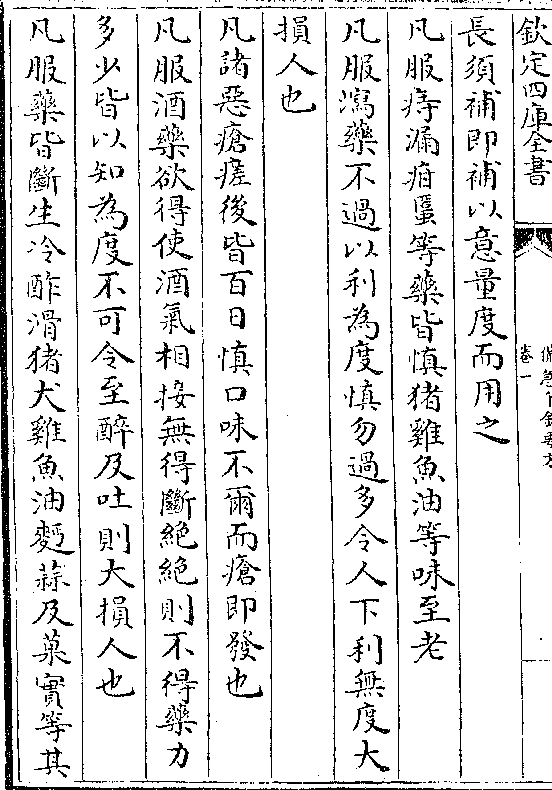 欽定四庫全書
卷一
長須補即補以意量度而用之
凡服痔漏疳䘌等藥皆慎猪雞魚油等味至老
凡服瀉藥不過以利為度慎勿過多令人下利無度大
損人也
凡諸惡瘡瘥後皆百日慎口味不爾而瘡即發也
凡服酒藥欲得使酒氣相接無得斷絶絶則不得藥力
多少皆以知為度不可令至醉及吐則大損人也
凡服藥皆斷生冷酢滑猪犬雞魚油麪蒜及菓實等其